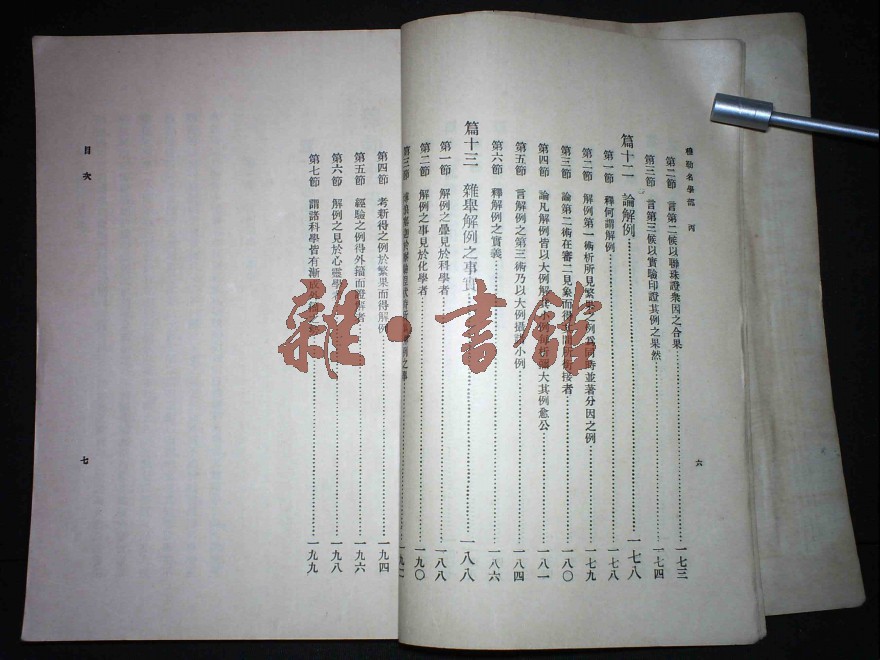 穆勒名學部 丙
六
第二節 言第二候以聯珠證衆因之合果 一七三
第三節 言第三候以實驗印證其例之果然 一七四
篇十二 論解例 一七八
第一節 釋何謂解例 一七八
第二節 解例第一術析所見繁果之例爲同時並著分因之例 一七九
第三節 論第二術在審二見象而得其間所銜接者 一八〇
第四節 論凡解例皆以大例解小例 大其例愈公 一八一
第五節 言解例之第三術乃以大例攝小例 一八四
第六節 釋解例之實義 一八六
篇十三 雜舉解例之事實 一八八
第一節 解例之疊見於科學者 一八八
第二節 解例之事見於化學者 一九〇
第三節 例之事
第四節 考新得之例於繁果而得解例 一九四
第五節 經驗之例得外籀而證解者 一九六
第六節 解例之見於心靈學者 一九八
第七節 謂諸科學皆有漸成外籀之 一九九
目次
七
雜·書館